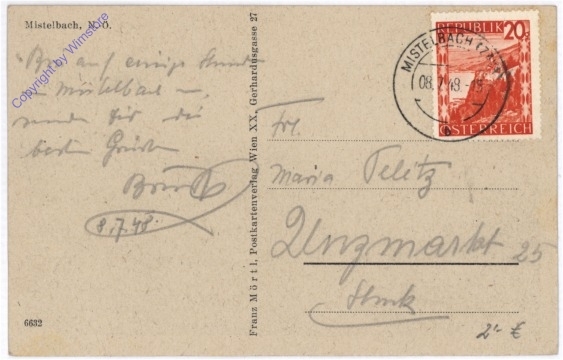 Mistelbach, N. Ö.
Copyright by Wimstore
Bin auf einige Stunden
in Mistelbach u.
sende Dir die
besten Grüße
8.7.48.
6632
Franz Mörtl, Postkartenverlag, Wien XX, Gerhardusgasse 27
REPUBLIK 20g
ÖSTERREICH
MISTELBACH
Frl.
Maria Pelitz
Unzmarkt 25
Stmk
2'- €